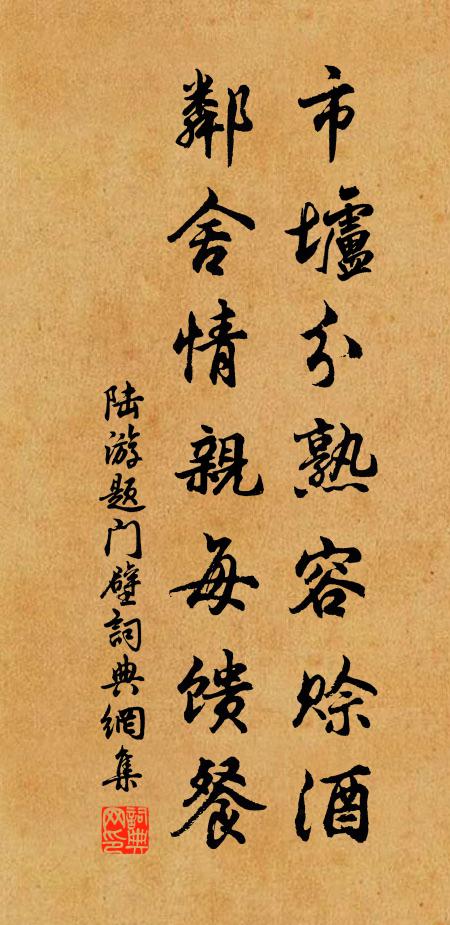 市壚分熟容賒酒
鄰舍情親每馈餐
陆游题门壁詞典網集
詞典网印